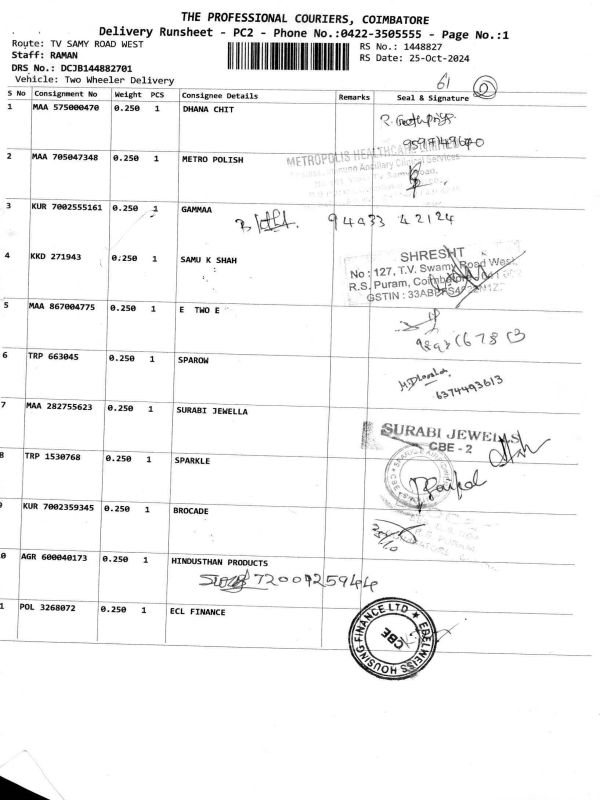 THE PROFESSIONAL COURIERS, COIMBATORE
Delivery Runsheet - PC2 - Phone No.:0422-3505555 - Page No.:1
Route: TV SAMY ROAD WEST
RS No.: 1448827
Staff: RAMAN
RS Date: 25-Oct-2024
DRS No.: DCJB144882701
Vehicle: Two Wheeler Delivery
61
S No Consignment No Weight PCS Consignee Details Remarks Seal & Signature
1 MAA 575000470 0.250 1 DHANA CHIT
2 MAA 705047348 0.250 1 METRO POLISH
METROPOLIS HEALTHCARE
Ancillary Clinical Services
3 KUR 7002555161 0.250 1 GAMMAA
94433 42124
4 KKD 271943 0.250 1 SAMU K SHAH
SHRESHT
No : 127, T.V. Swamy Road West,
R.S. Puram,
GSTIN :
5 MAA 867004775 0.250 1 E TWO E
6 TRP 663045 0.250 1 SPAROW
6374493613
7 MAA 282755623 0.250 1 SURABI JEWELLA
SURABI JEWELLS
CBE - 2
8 TRP 1530768 0.250 1 SPARKLE
KUR 7002359345 0.250 1 BROCADE
25/10
0 AGR 600040173 0.250 1 HINDUSTHAN PRODUCTS
7200425944
1 POL 3268072 0.250 1 ECL FINANCE
EDELWEISS HOUSING FINANCE LTD
CBE